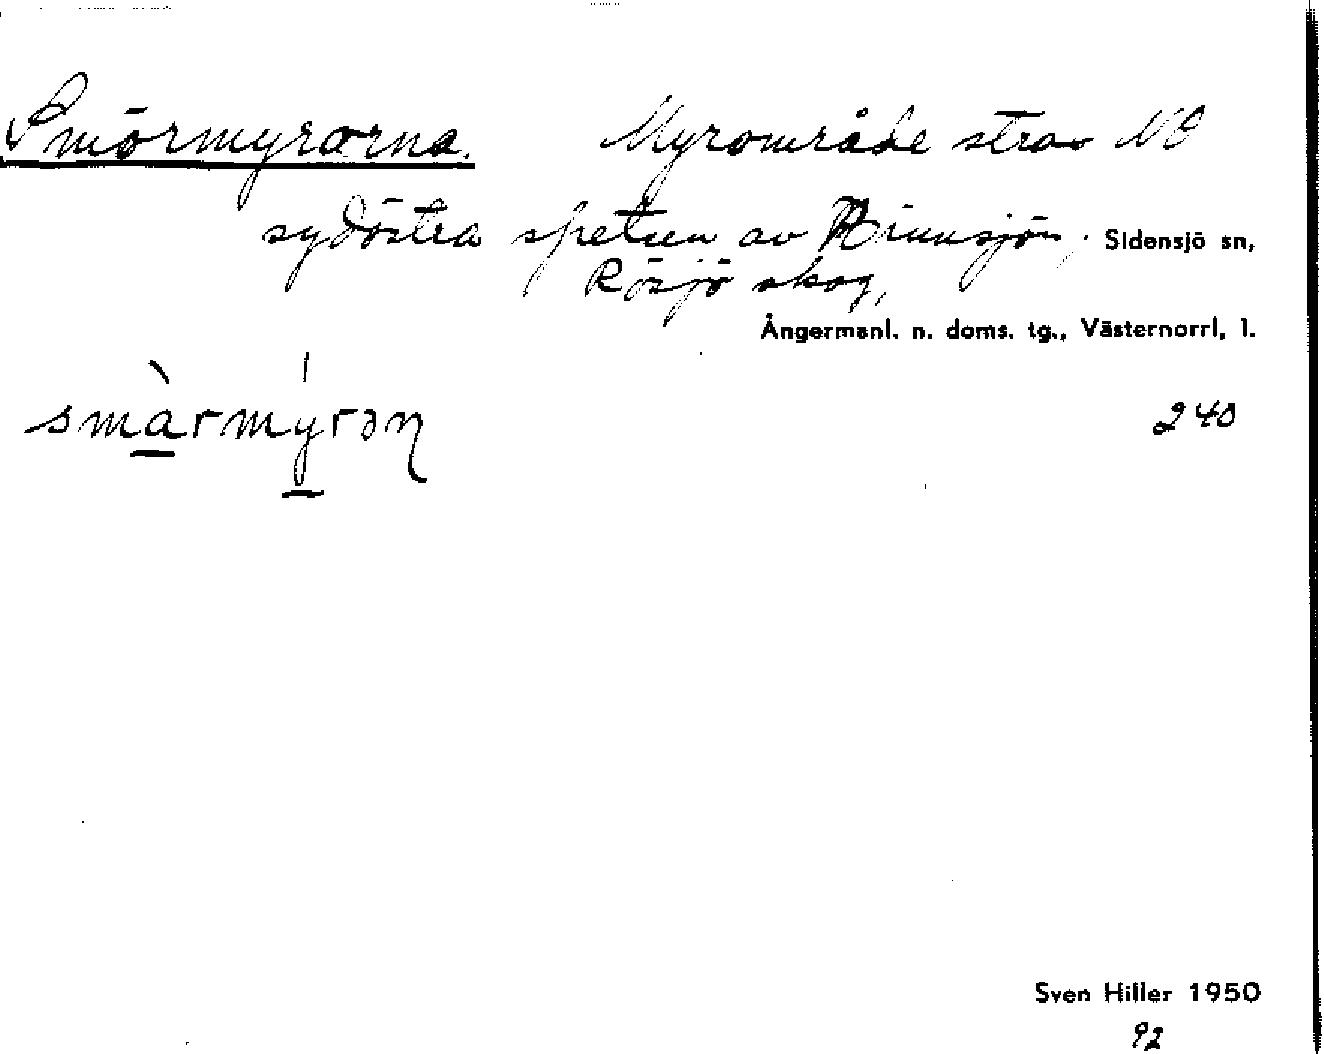 Smörmyrorna. Myrområde strax NO
sydöstra spetsen av
Sidensjö sn,
Rösjö skog,
Ångermanl. n. doms. tg., Västernorrl, l.
240
Sven Hiller 1950
92